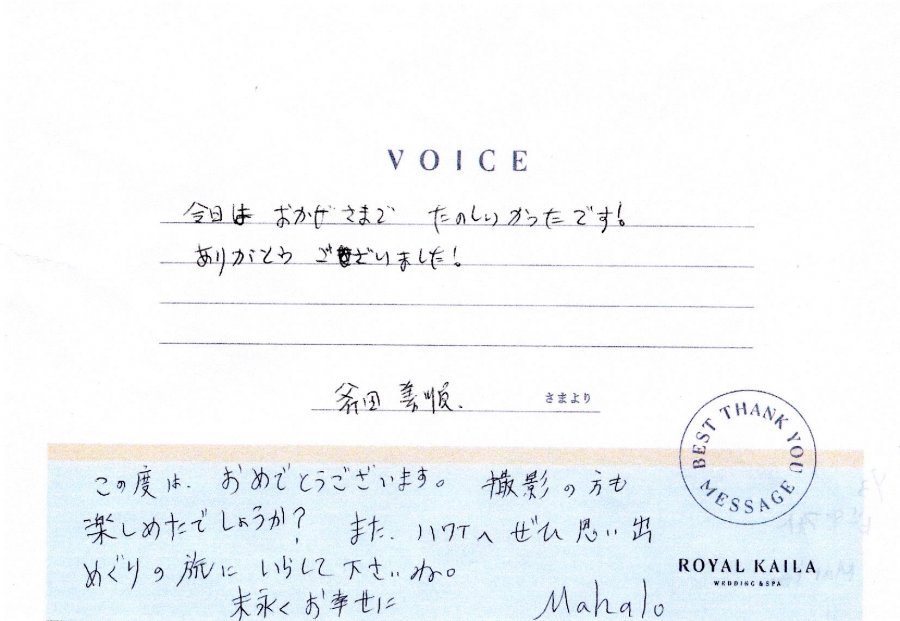 VOICE
今日は おかげさまで たのしいかったです!
ありがとう ございました!
斧田 善順. さまより
BEST THANK YOU MESSAGE
この度は、おめでとうございます。 撮影の方も
楽しめたでしょうか? また、ハワイへ ぜひ 思い出
ROYAL KAILA
WEDDING & SPA
めぐりの 旅に いらして下さいね。
末永く お幸せに Mahalo